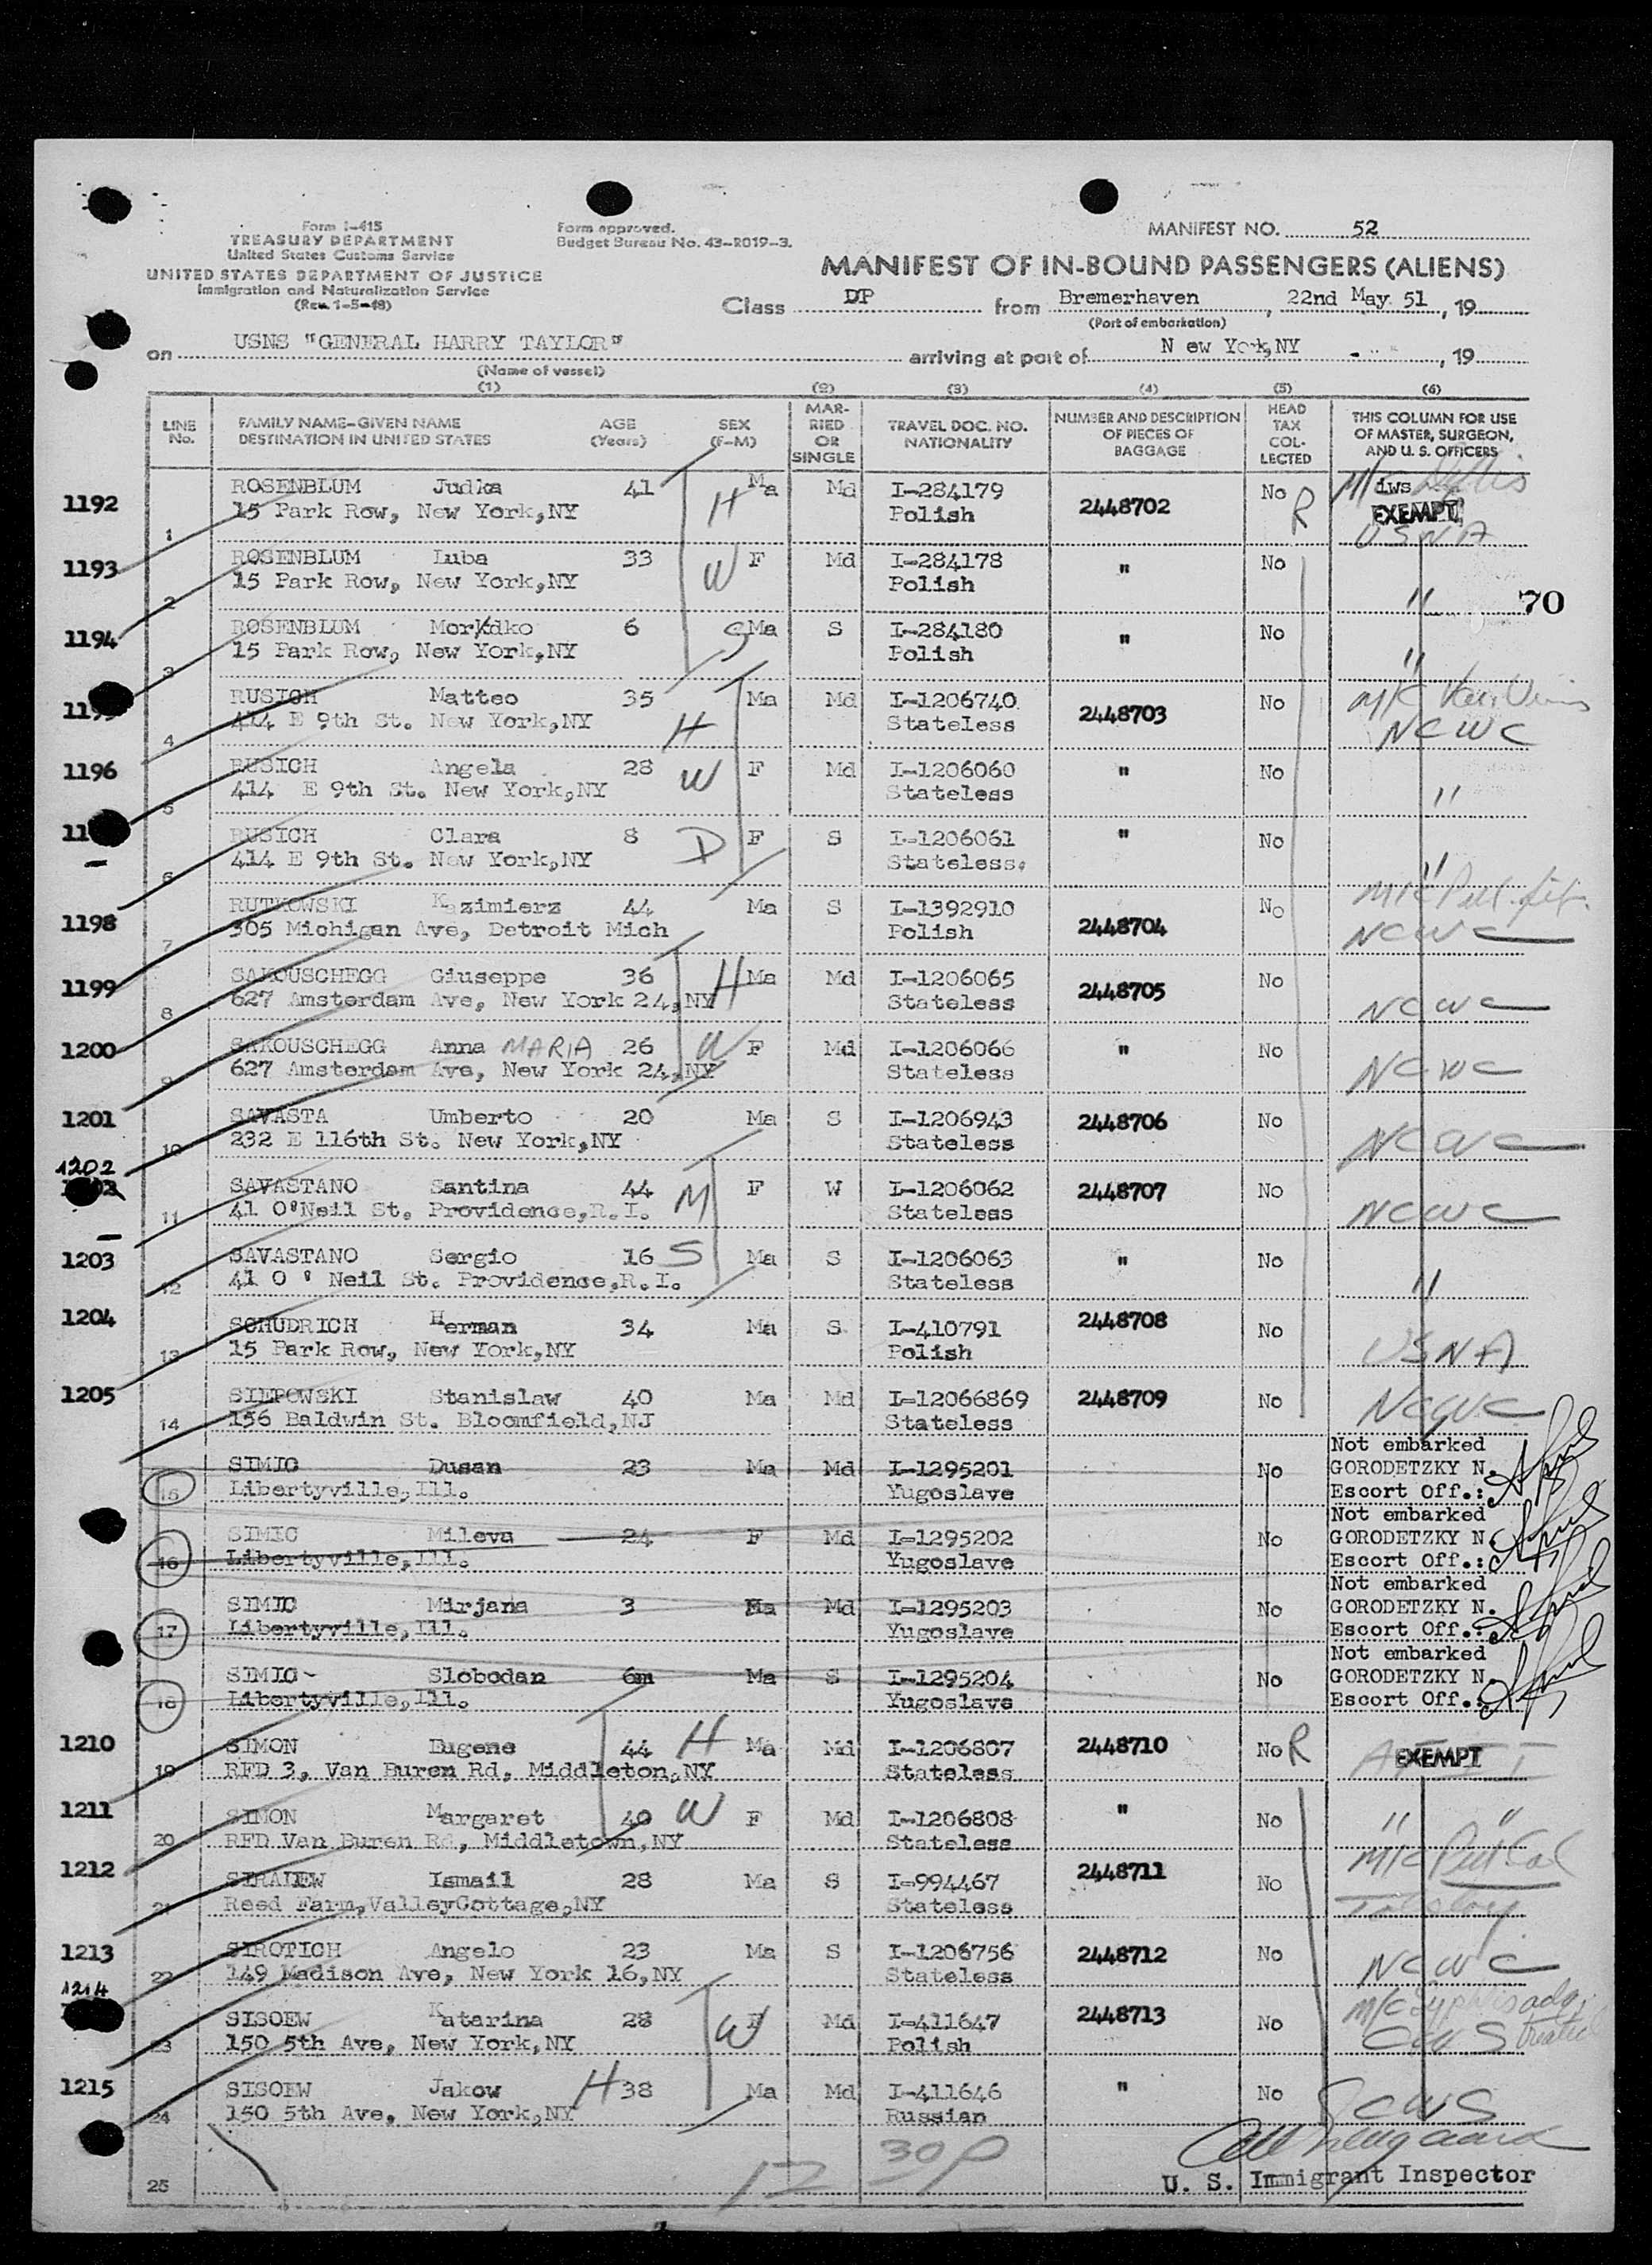 Form I-415
TREASURY DEPARTMENT
United States Customs Service
UNITED STATES DEPARTMENT OF JUSTICE
Immigration and Naturalization Service
(Rev. 1-5-48)
Form approved.
Budget Bureau No. 43-R019-3.
MANIFEST NO. 52
MANIFEST OF IN-BOUND PASSENGERS (ALIENS)
Class DP from Bremerhaven, 22nd May 51, 19
(Port of embarkation)
on USNS "GENERAL HARRY TAYLOR" arriving at port of N ew York,NY , 19
(Name of vessel)
(1) (2) (3) (4) (5) (6)
LINE No. FAMILY NAME-GIVEN NAME DESTINATION IN UNITED STATES AGE (Years) SEX (F-M) MARRIED OR SINGLE TRAVEL DOC. NO. NATIONALITY NUMBER AND DESCRIPTION OF PIECES OF BAGGAGE HEAD TAX COLLECTED THIS COLUMN FOR USE OF MASTER, SURGEON, AND U. S. OFFICERS
1192 ROSENBLUM Judka 41 H Ma Md I-284179 2448702 No R M/C iws
1 15 Park Row, New York,NY Polish EXEMPT USNA
1193 ROSENBLUM Luba 33 W F Md I-284178 " No
2 15 Park Row, New York,NY Polish " 70
1194 ROSENBLUM Mordko 6 S Ma S I-284180 " No
3 15 Park Row, New York,NY Polish "
RUSICH Matteo 35 Ma Md I-1206740 2448703 No M/C
4 414 E 9th St. New York,NY H Stateless NCWC
1196 RUSICH Angela 28 W F Md I-1206060 " No
5 414 E 9th St. New York,NY Stateless "
RUSICH Clara 8 D F S I-1206061 " No
6 414 E 9th St. New York,NY Stateless. "
1198 RUTKOWSKI Kazimierz 44 Ma S I-1392910 2448704 No M/C
7 305 Michigan Ave, Detroit Mich Polish NCWC
1199 SAKOUSCHEGG Giuseppe 36 H Ma Md I-1206065 2448705 No
8 627 Amsterdam Ave, New York 24,NY Stateless NCWC
1200 SAKOUSCHEGG Anna MARIA 26 W F Md I-1206066 " No
9 627 Amsterdam Ave, New York 24,NY Stateless NCWC
1201 SAVASTA Umberto 20 Ma S I-1206943 2448706 No
10 232 E 116th St. New York,NY Stateless NCWC
1202 SAVASTANO Santina 44 M F W I-1206062 2448707 No
11 41 O'Neil St. Providence,R.I. Stateless NCWC
1203 SAVASTANO Sergio 16 S Ma S I-1206063 " No
12 41 O ' Neil St. Providence,R.I. Stateless "
1204 SCHUDRICH Herman 34 Ma S I-410791 2448708 No
13 15 Park Row, New York,NY Polish USNA
1205 SIEPOWSKI Stanislaw 40 Ma Md I-12066869 2448709 No
14 156 Baldwin St. Bloomfield,NJ Stateless NCWC
Not embarked
SIMIC Dusan 23 Ma Md I-1295201 No GORODETZKY N.
15 Libertyville,Ill. Yugoslave Escort Off.:
Not embarked
SIMIC Mileva 24 F Md I-1295202 No GORODETZKY N.
16 Libertyville,Ill. Yugoslave Escort Off.:
Not embarked
SIMIC Mirjana 3 Ma Md I-1295203 No GORODETZKY N.
17 Libertyville,Ill. Yugoslave Escort Off.:
Not embarked
SIMIC Slobodan 6m Ma S I-1295204 No GORODETZKY N.
18 Libertyville,Ill. Yugoslave Escort Off.:
1210 SIMON Eugene 44 H Ma Md I-1206807 2448710 No R EXEMPT
19 RFD 3, Van Buren Rd, Middleton,NY Stateless
1211 SIMON Margaret 40 W F Md I-1206808 " No " "
20 RFD Van Buren Rd, Middletown,NY Stateless
1212 SIRALEW Ismail 28 Ma S I-994467 2448711 No M/C
21 Reed Farm,ValleyCottage,NY Stateless Tolstoy
1213 SIROTICH Angelo 23 Ma S I-1206756 2448712 No
22 149 Madison Ave, New York 16,NY Stateless NCWC
1214 SISOEW Katarina 28 W F Md I-411647 2448713 No M/C
23 150 5th Ave, New York,NY Polish CWS
1215 SISOEW Jakow H 38 Ma Md I-411646 " No
24 150 5th Ave, New York,NY Russian CWS
25 12 30 U. S. Immigrant Inspector